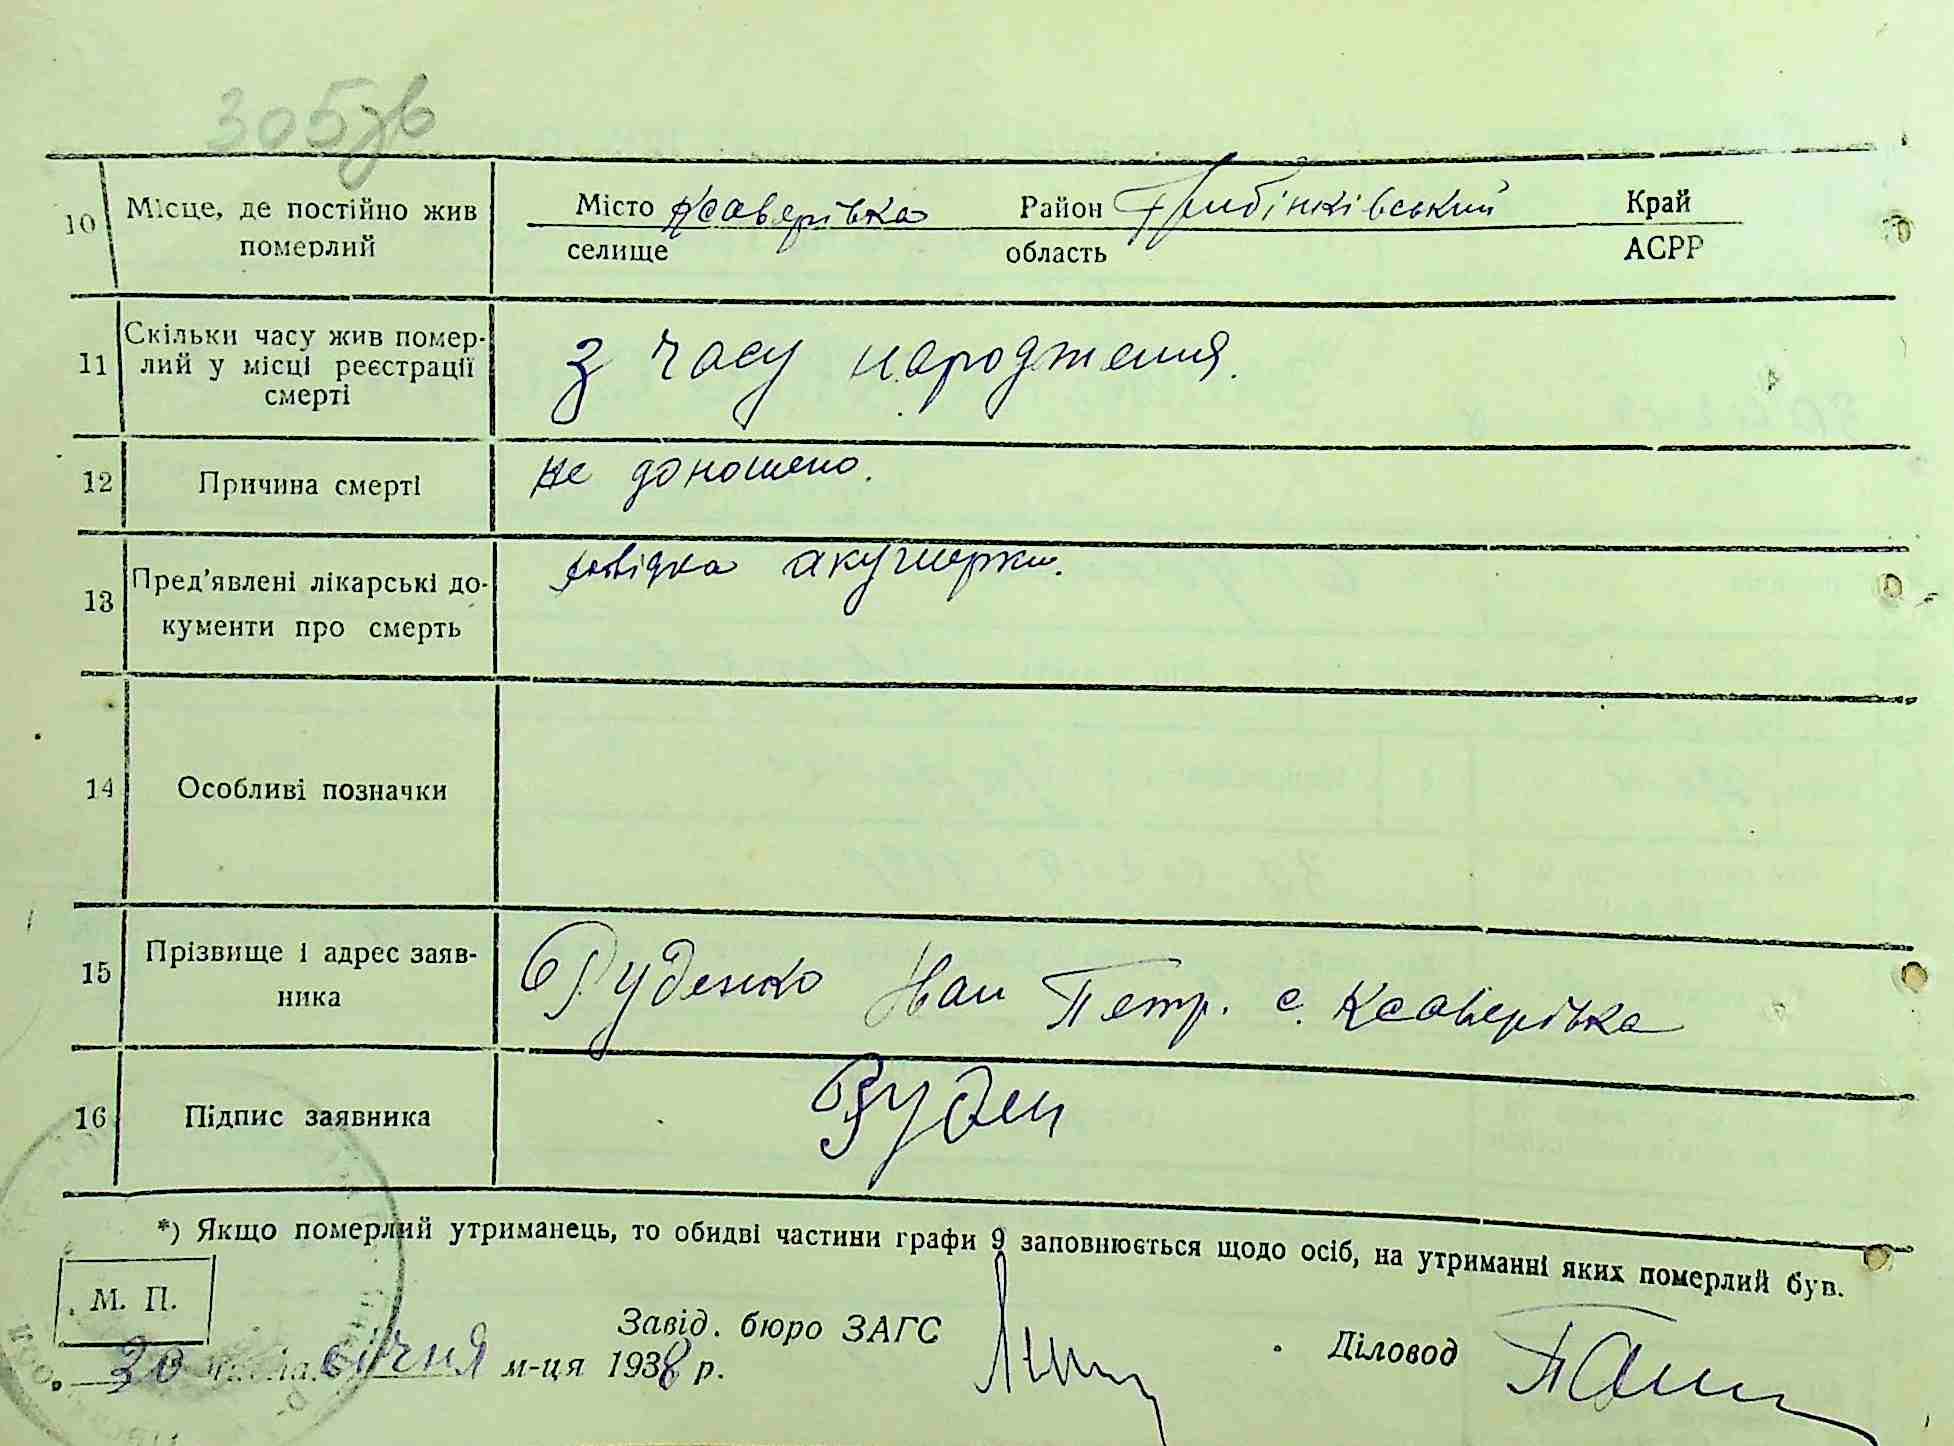 305зв
10 Місце, де постійно жив померлий
Місто Ксаверівка Район Гребінківський Край
селище область АСРР
11 Скільки часу жив помер-
лий у місці реєстрації
смерті
з часу народження.
12 Причина смерті
не доношено.
13 Пред'явлені лікарські до-
кументи про смерть
довідка акушерки.
14 Особливі позначки
15 Прізвище і адрес заяв-
ника
Руденко Іван Петр. с. Ксаверівка
16 Підпис заявника
Руден
*) Якщо померлий утриманець, то обидві частини графи 9 заповнюється щодо осіб, на утриманні яких померлий був.
М. П.
Завід. бюро ЗАГС
Діловод
30 числа січня м-ця 1938 р.